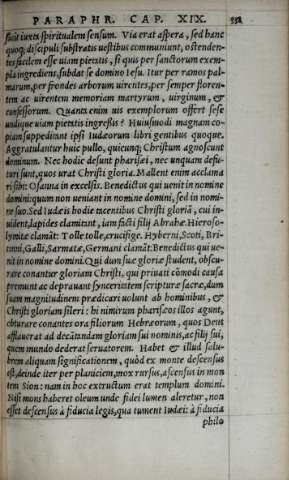 PARAPHR. CAP. XIX. 332
ficit iuxta spiritualem sensum. Via erat aspera, sed hanc
quoq; discipuli substratis uestibus communiunt, ostenden-
tes facilem esse uiam pietatis, si quis per sanctorum exem-
pla ingrediens, subdat se domino Iesu. Itur per ramos pal-
marum, per frondes arborum uirentes, per semper floren-
tem ac uirentem memoriam martyrum, uirginum, &
confessorum. Quanta enim uis exemplorum offert sese
undique uiam pietatis ingressis? Huiusmodi magnam co-
piam suppeditant ipsi Iudæorum libri gentibus quoque.
Aggratulantur huic pullo, quicunq; Christum agnoscunt
dominum. Nec hodie desunt pharisæi, nec unquam defu-
turi sunt, quos urat Christi gloria. Mallent enim acclama
ri sibi: Osanna in excelsis. Benedictus qui uenit in nomine
domini: quum non ueniant in nomine domini, sed in nomi-
ne suo. Sed Iudæis hodie tacentibus Christi gloriã, cui in-
uident, lapides clamitant, iam facti filij Abrahæ. Hieroso-
lymitæ clamãt: Tolle tolle, crucifige. Hyberni, Scoti, Bri-
tanni, Galli, Sarmatæ, Germani clamãt: Benedictus qui ue-
nit in nomine domini. Qui dum suæ gloriæ student, obscu-
rare conantur gloriam Christi, qui priuati cõmodi causa
premunt ac deprauant synceritatem scripturæ sacræ, dum
suam magnitudinem prædicari uolunt ab hominibus, &
Christi gloriam sileri: hi nimirum pharisæos illos agunt,
obturare conantes ora filiorum Hebræorum, quos Deus
afflauerat ad decãtandam gloriam sui nominis, ac filij sui,
quem mundo dederat seruatorem. Habet & illud salu-
brem aliquam significationem, quòd ex monte descensus
est, deinde iter per planiciem, mox rursus, ascensus in mon
tem Sion: nam in hoc extructum erat templum domini.
Nisi mons haberet oleum unde fidei lumen aleretur, non
esset descensus à fiducia legis, qua tument Iudæi: à fiducia
philo